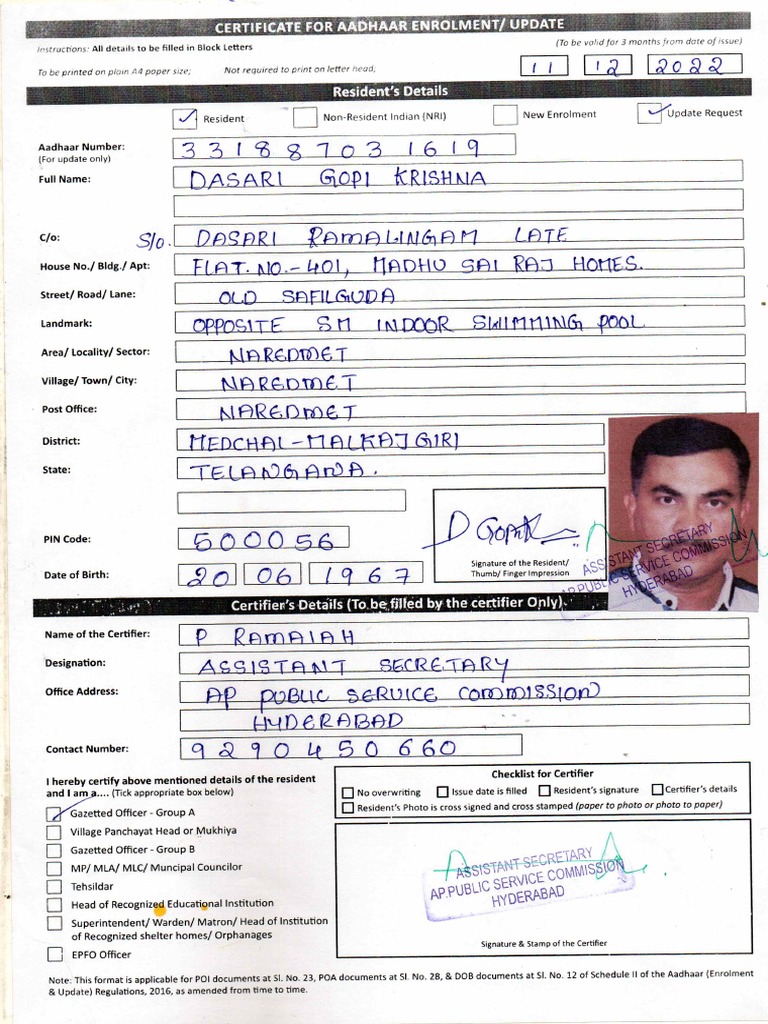 CERTIFICATE FOR AADHAAR ENROLMENT/ UPDATE
Instructions: All details to be filled in Block Letters
(To be valid for 3 months from date of issue)
To be printed on plain A4 paper size; Not required to print on letter head;
11 12 2022
Resident's Details
Resident Non-Resident Indian (NRI) New Enrolment Update Request
Aadhaar Number: 33188703 1619
(For update only)
Full Name: DASARI GOPI KRISHNA
C/o: S/o. DASARI RAMALINGAM LATE
House No./ Bldg./ Apt: FLAT. NO.-401, MADHU SAI RAJ HOMES.
Street/ Road/ Lane: OLD SAFILGUDA
Landmark: OPPOSITE SM INDOOR SWIMMING POOL
Area/ Locality/ Sector: NAREDMET
Village/ Town/ City: NAREDMET
Post Office: NAREDMET
District: MEDCHAL-MALKAJGIRI
State: TELANGANA.
PIN Code: 500056
Signature of the Resident/
Thumb/ Finger Impression
ASSISTANT SECRETARY
AP.PUBLIC SERVICE COMMISSION
HYDERABAD
Date of Birth: 20 06 1967
Certifier's Details (To be filled by the certifier Only)
Name of the Certifier: P RAMAIAH
Designation: ASSISTANT SECRETARY
Office Address: AP PUBLIC SERVICE COMMISSION
HYDERABAD
Contact Number: 9290450660
I hereby certify above mentioned details of the resident
and I am a.... (Tick appropriate box below)
Gazetted Officer - Group A
Village Panchayat Head or Mukhiya
Gazetted Officer - Group B
MP/ MLA/ MLC/ Muncipal Councilor
Tehsildar
Head of Recognized Educational Institution
Superintendent/ Warden/ Matron/ Head of Institution
of Recognized shelter homes/ Orphanages
EPFO Officer
Checklist for Certifier
No overwriting Issue date is filled Resident's signature Certifier's details
Resident's Photo is cross signed and cross stamped (paper to photo or photo to paper)
ASSISTANT SECRETARY
AP.PUBLIC SERVICE COMMISSION
HYDERABAD
Signature & Stamp of the Certifier
Note: This format is applicable for POI documents at Sl. No. 23, POA documents at Sl. No. 28, & DOB documents at Sl. No. 12 of Schedule II of the Aadhaar (Enrolment
& Update) Regulations, 2016, as amended from time to time.